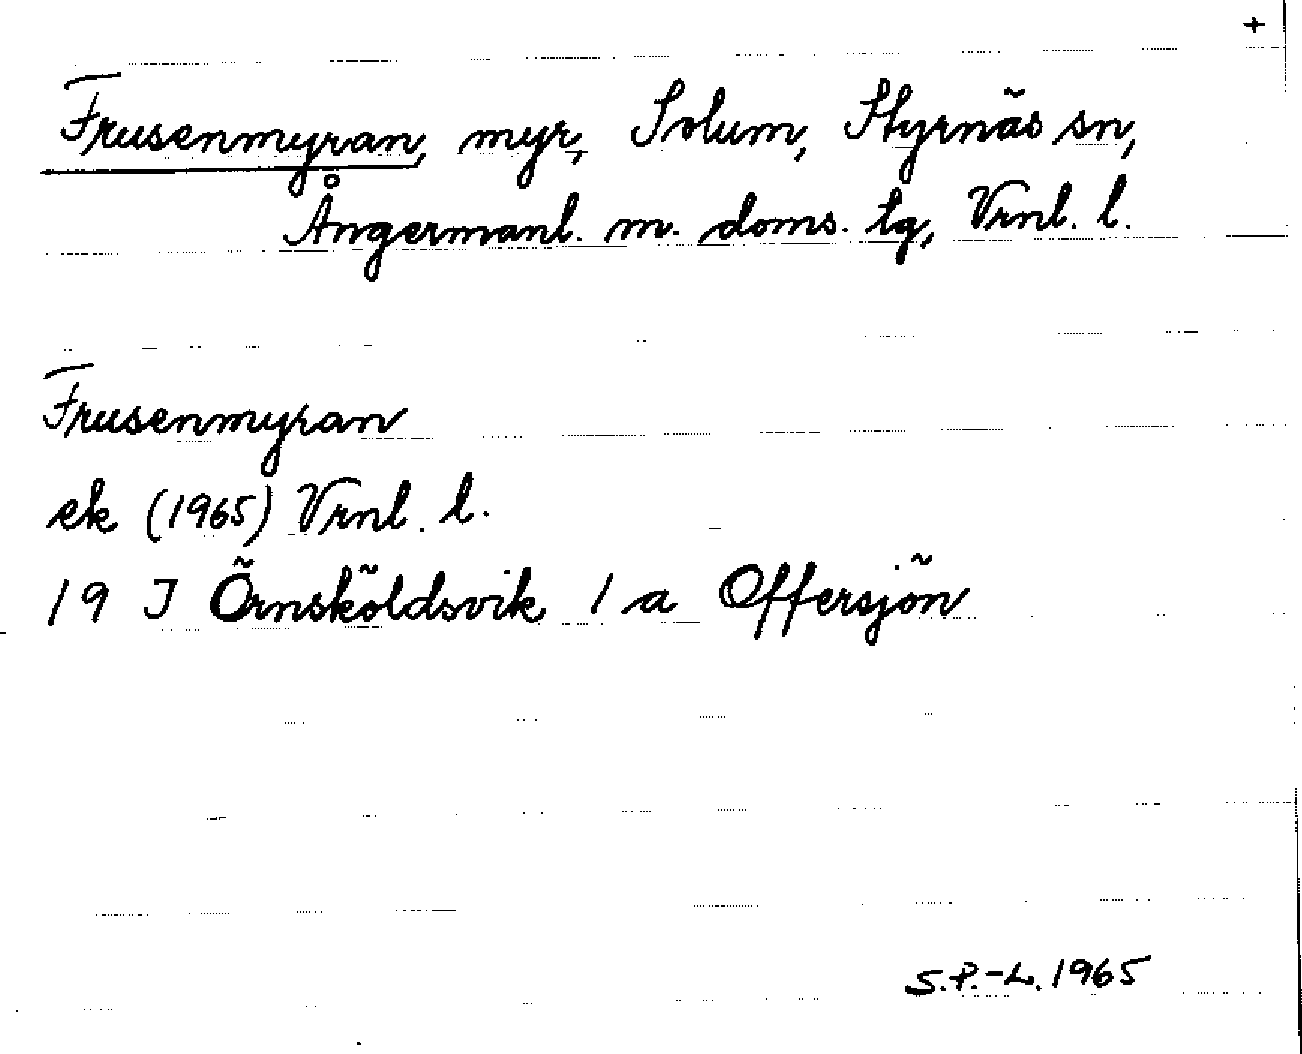 +
Frusenmyran, myr, Solum, Styrnäs sn,
Ångermanl. m. doms. lg, Vrnl. l.
Frusenmyran
ek (1965) Vrnl. l.
19 I Örnsköldsvik 1 a Offersjön
S.P.-L. 1965